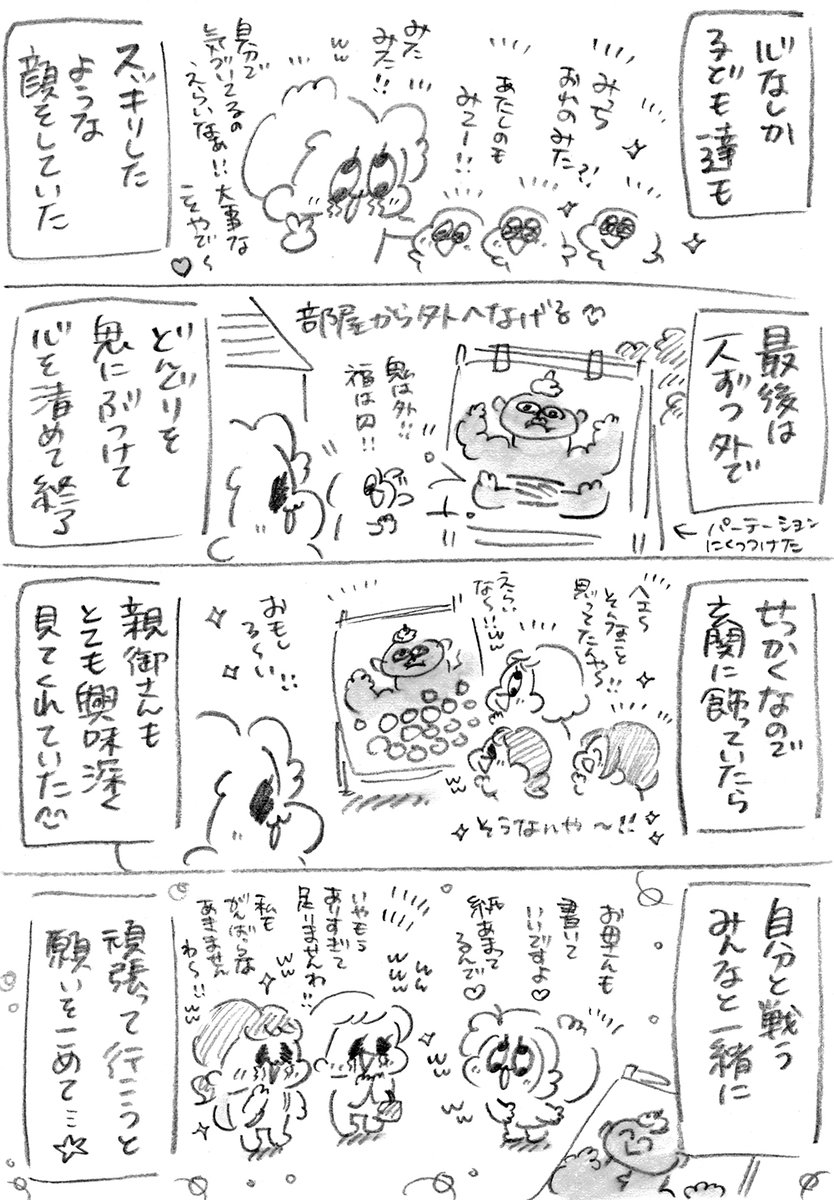 心なしか
子ども達も
みっち
おれのみた?!
あたしのも
みてー!!
みた
みた!!
ww
自分で
気づいてるの
えらいなぁ!!大事な
こやで〜
スッキリした
ような
顔をしていた
最後は
一人ずつ外で
部屋から外へなげる
パーテーション
にくっつけた
鬼は外!!
福は内!!
どんぐりを
鬼にぶつけて
心を清めて終了
せっかくなので
玄関に飾っていたら
へぇ〜
そんなこと
思ってたんやら!!
えらい
な〜!!ww
そうなんや〜!!
おもし
ろ〜い!!
親御さんも
とても興味深く
見てくれていた
自分と戦う
みんなと一緒に
お母さんも
書いて
いいですよ♡
紙あまって
るんで♡
いやもう
ありすぎて
足りませんわ!!
ww
私も
がんばらな
あきません
わ〜!!ww
頑張って行こうと
願いをこめて…☆